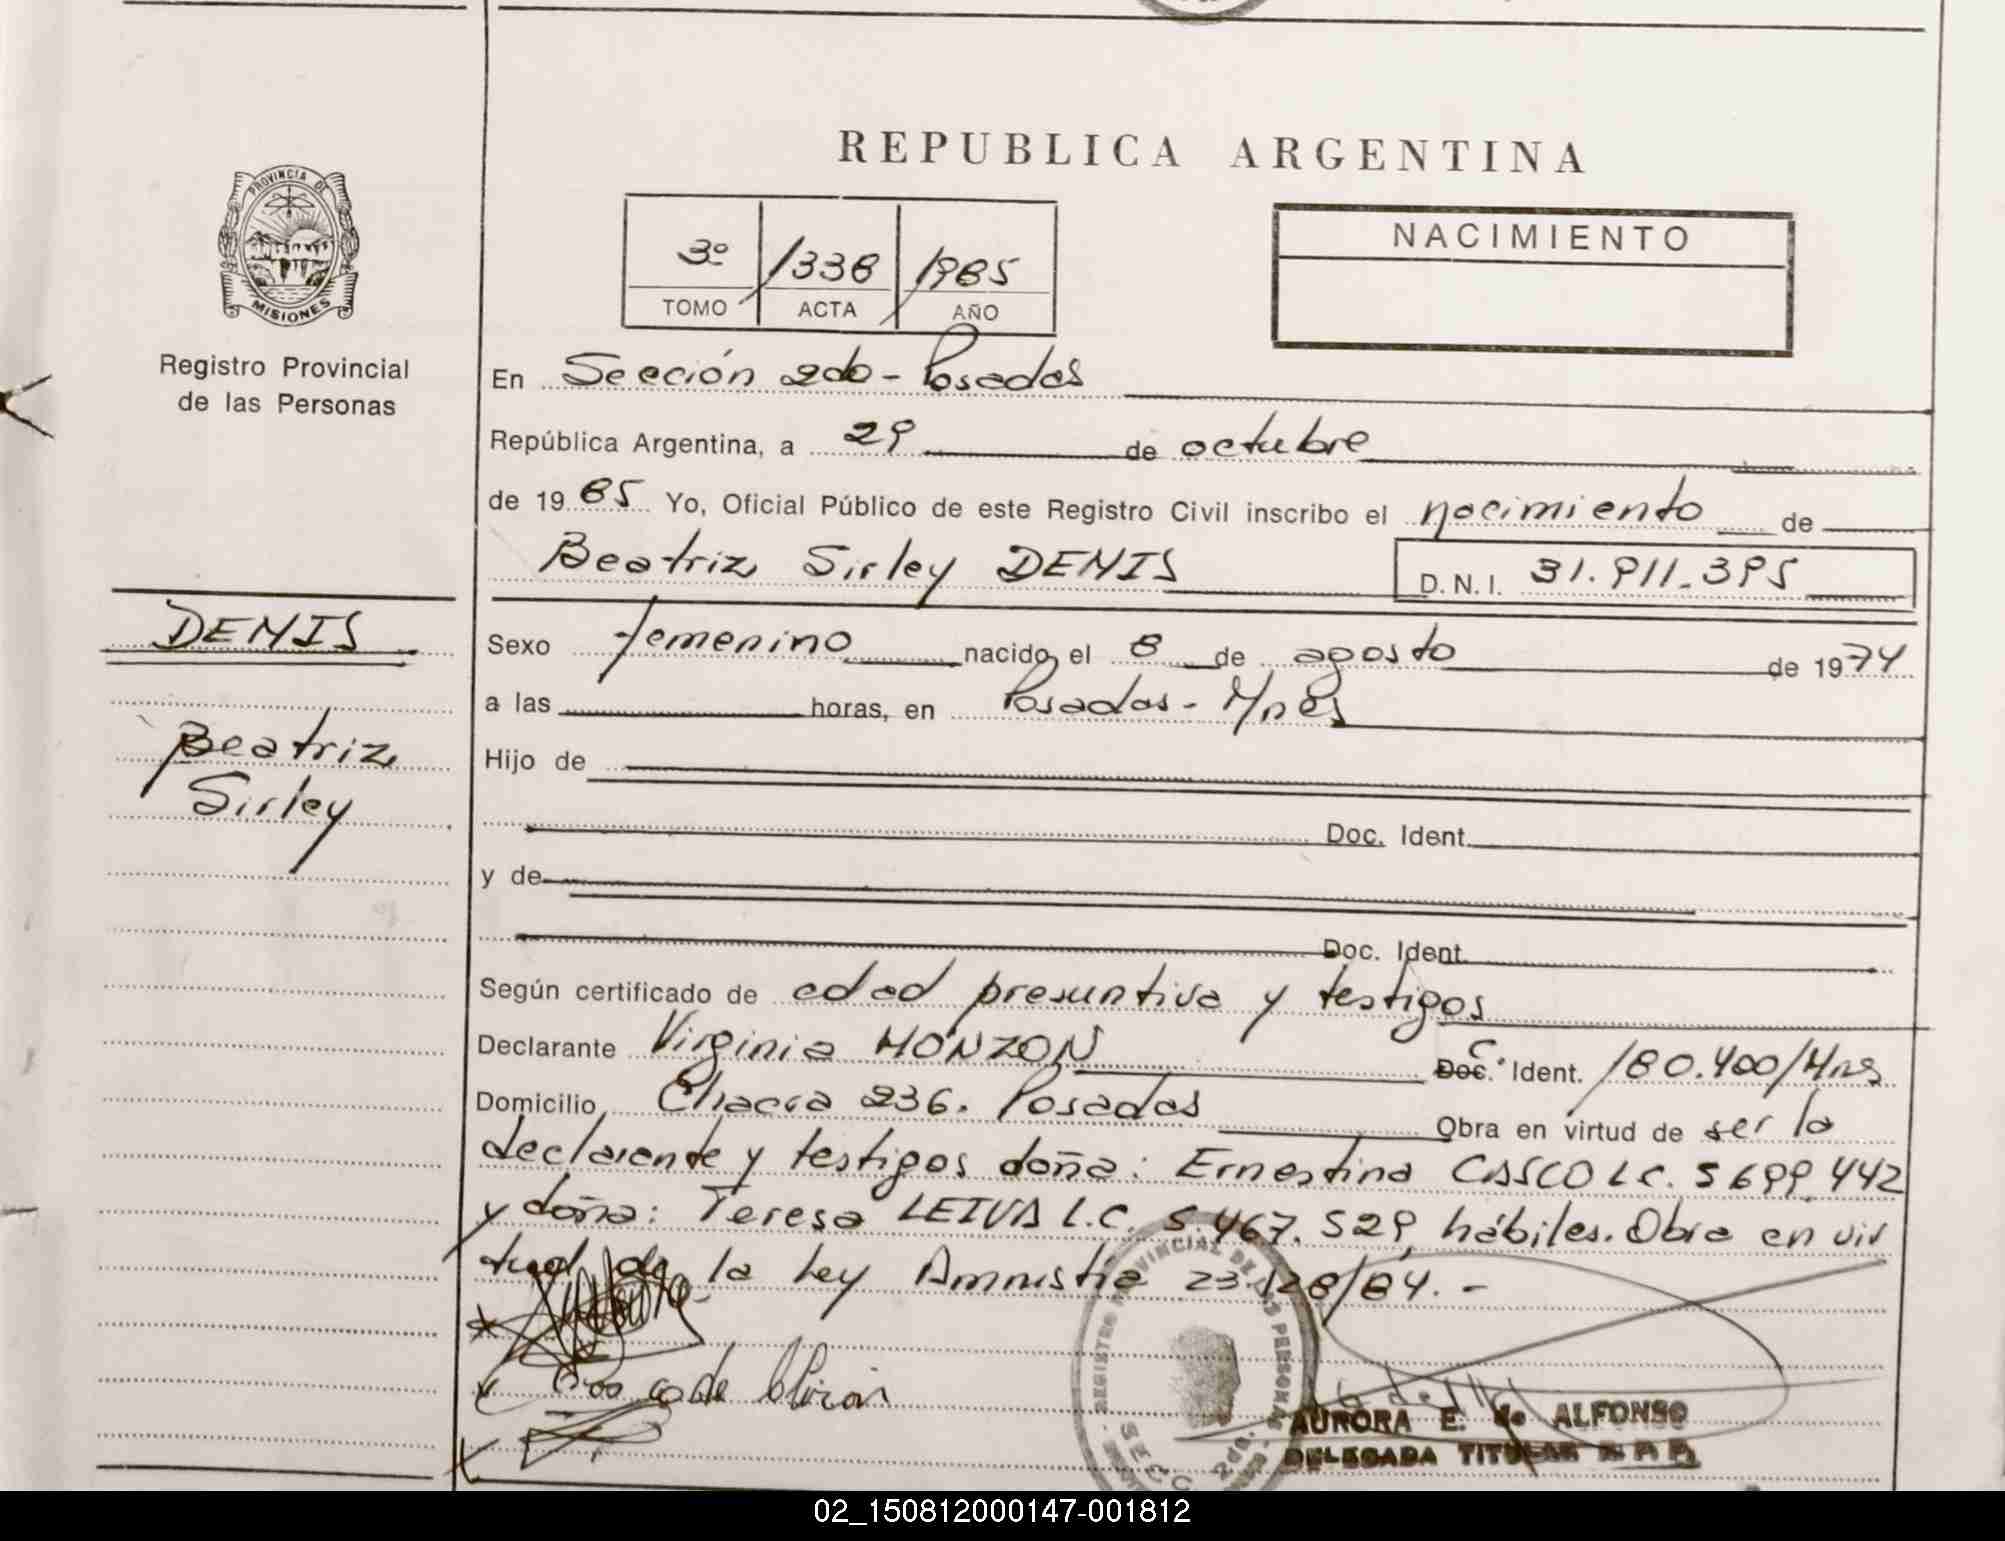 REPUBLICA ARGENTINA
PROVINCIA DE
MISIONES
Registro Provincial
de las Personas
3º /338 /1985
TOMO ACTA AÑO
NACIMIENTO
En Sección 2do - Posadas
República Argentina, a 29 de octubre
de 1985 Yo, Oficial Público de este Registro Civil inscribo el nacimiento de
Beatriz Sirley DENIS D.N.I. 31.911.395
DENIS
Beatriz
Sirley
Sexo femenino nacido el 8 de agosto de 1974
a las horas, en Posadas - Mnes
Hijo de
Doc. Ident.
y de
Doc. Ident.
Según certificado de edad presuntiva y testigos
Declarante Virginia MONZON Doc. C. Ident. 180.400/Mns
Domicilio Chacra 236. Posadas Obra en virtud de ser la
declarente y testigos doña: Ernestina CASCO L.C. 5699.442
y doña: Teresa LEIVA L.C. 5.467.529 hábiles. Obra en vir
tud de la Ley Amnistia 23.128/84.-
REGISTRO PROVINCIAL DE LAS PERSONAS
SECC 2da.
AURORA E. de ALFONSO
DELEGADA TITULAR
02_150812000147-001812